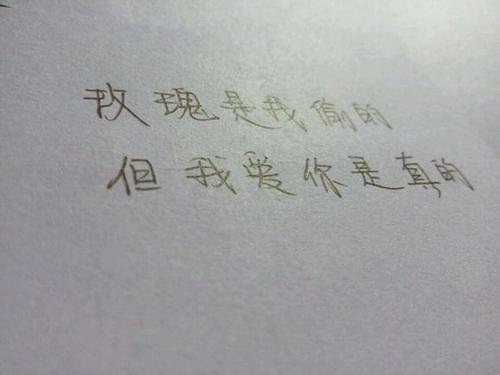 玫瑰是我偷的
但我爱你是真的